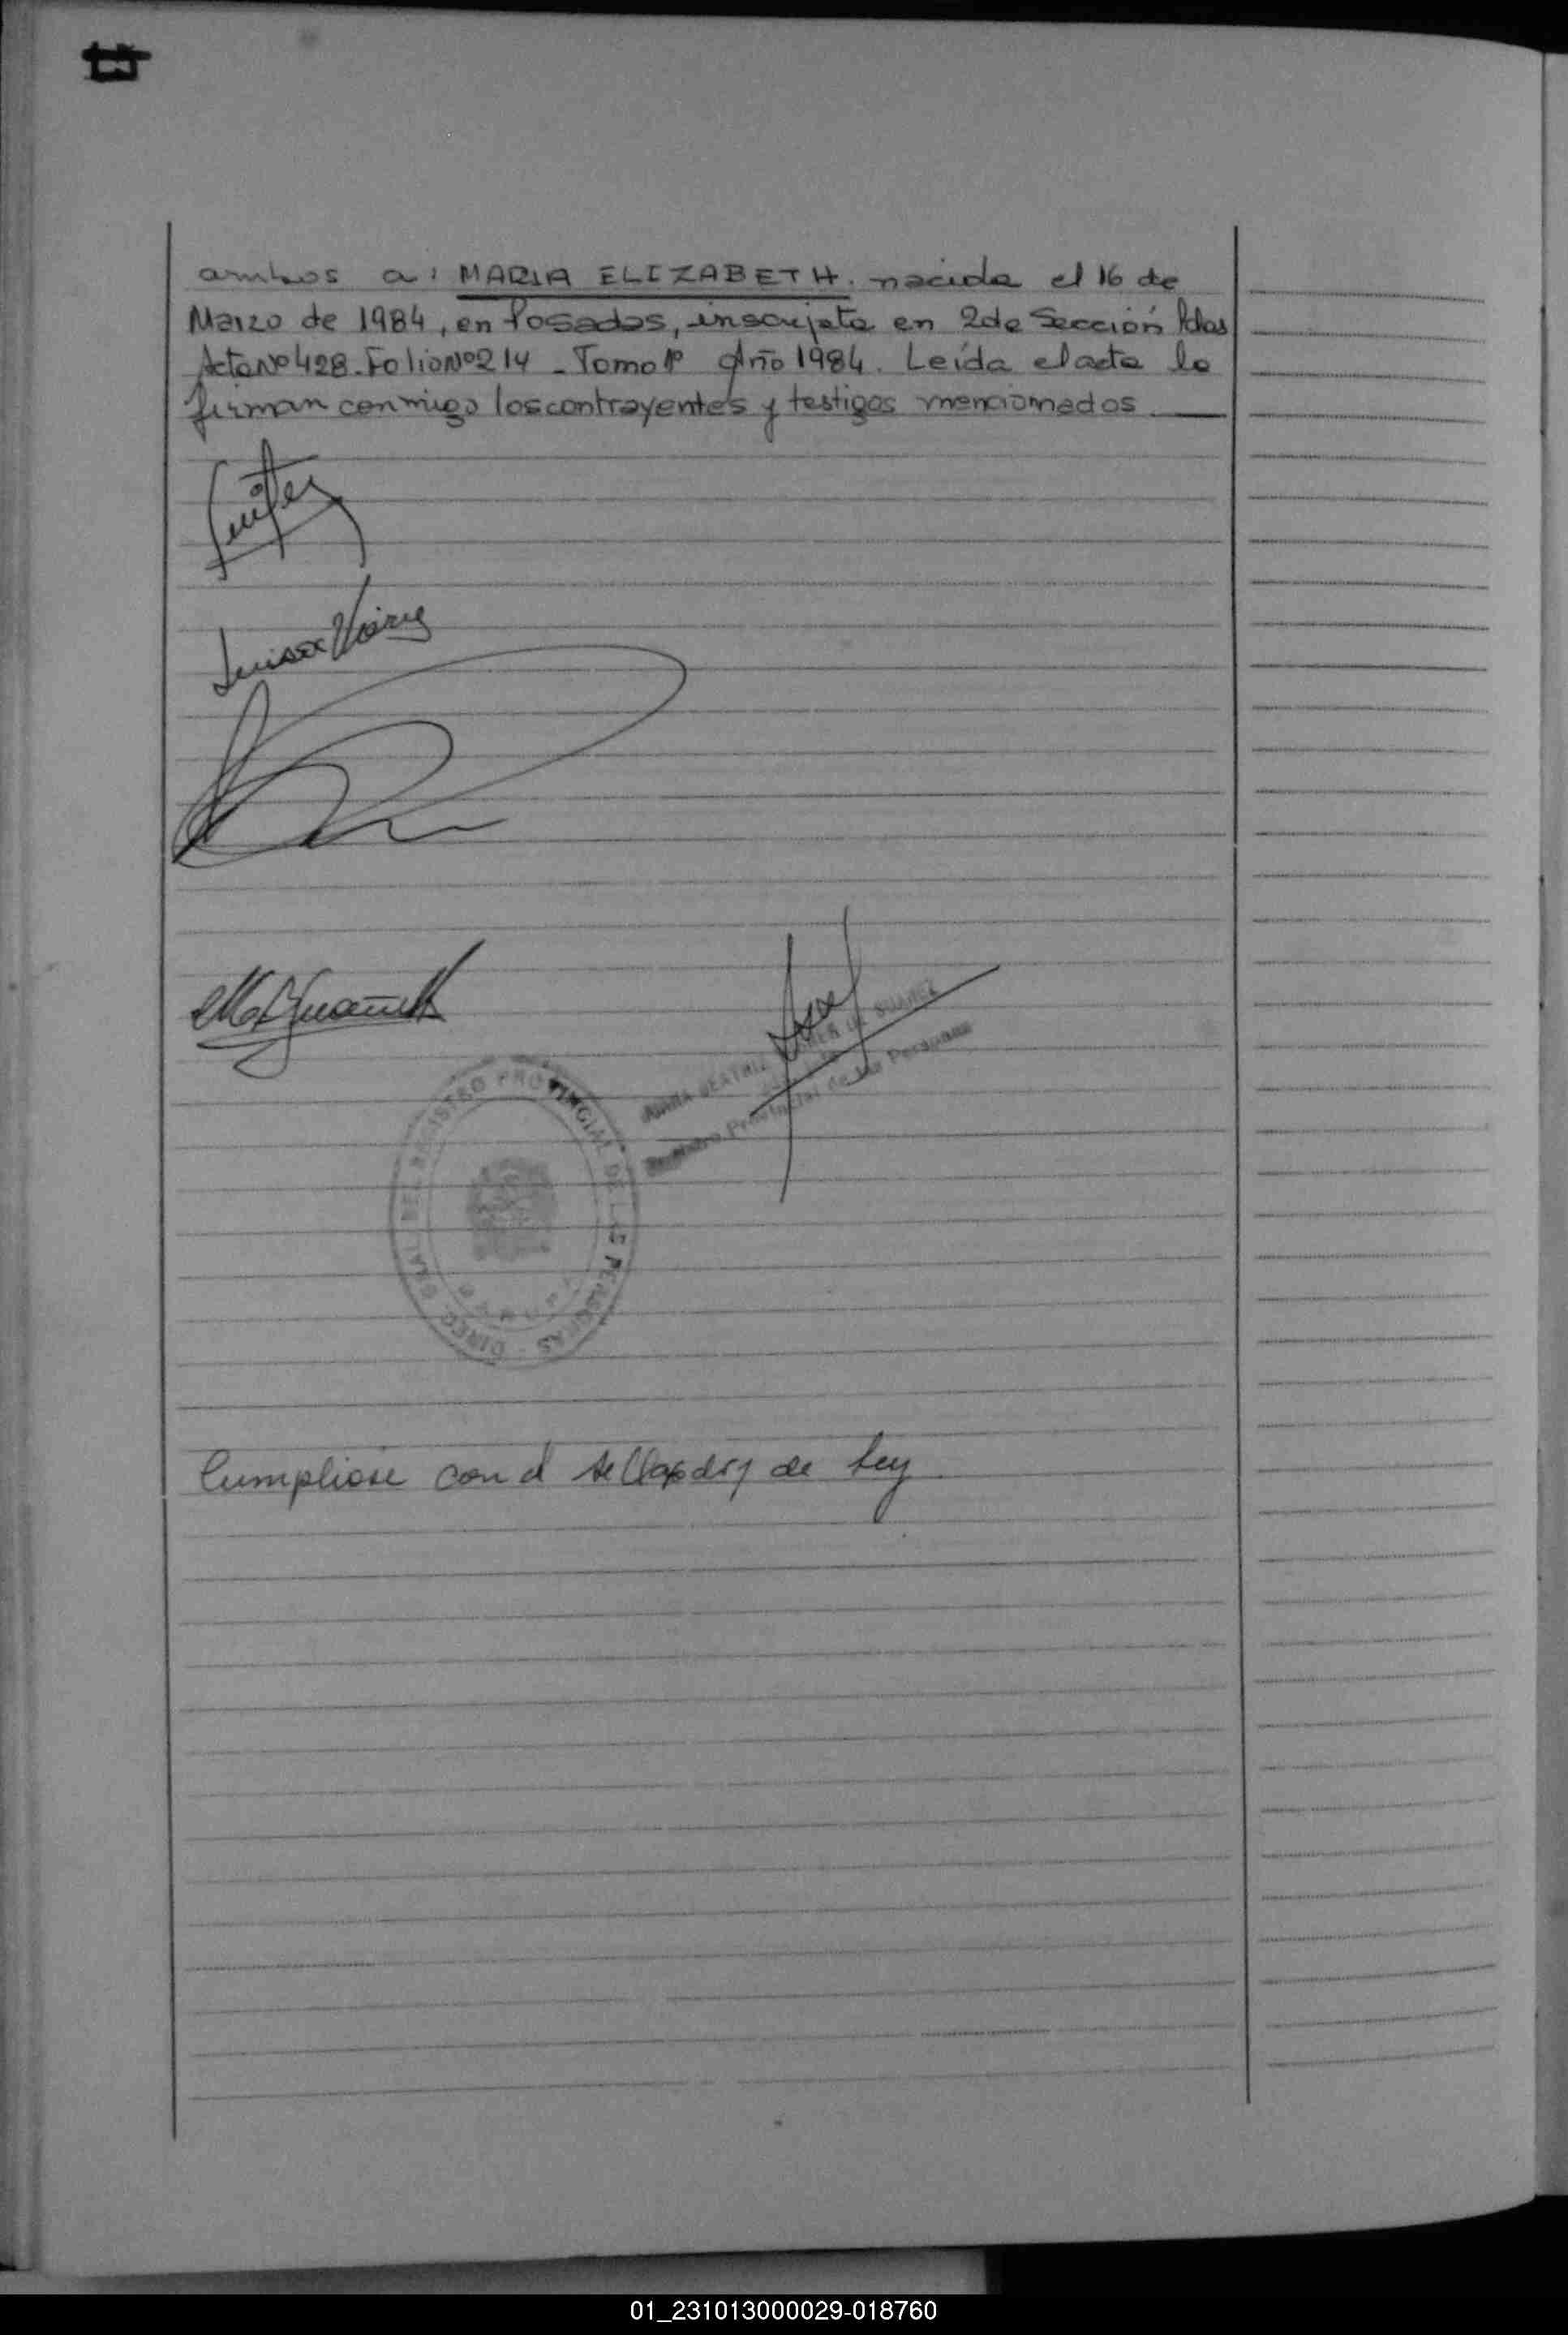 ambos a: MARIA ELIZABETH. nacida el 16 de
Marzo de 1984, en Posadas, inscripta en 2da Sección Pdas
Acta Nº 428. Folio Nº 214 - Tomo 1º Año 1984. Leída el acta la
firman conmigo los contrayentes y testigos mencionados
Luisa
BEATRIZ DE SUAREZ
Registro Provincial de las Personas
DIREC. GRAL. DEL REGISTRO PROVINCIAL DE LAS PERSONAS
Cumpliose con el de Ley
01_231013000029-018760